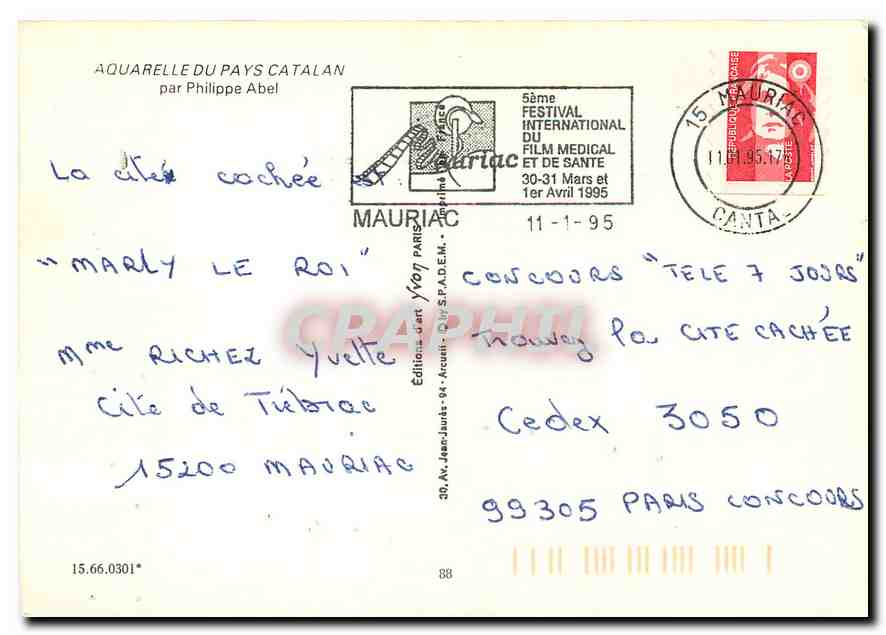 AQUARELLE DU PAYS CATALAN
par Philippe Abel
La cité cachée est :
"MARLY LE ROI"
Mme RICHEZ Yvette
Cité de Tiébrac
15200 MAURIAC
15.66.0301*
5ème
FESTIVAL
INTERNATIONAL
DU
FILM MEDICAL
ET DE SANTE
30-31 Mars et
1er Avril 1995
Mauriac
MAURIAC
11-1-95
REPUBLIQUE FRANÇAISE
LA POSTE
15 MAURIAC
11.01.95.17
CANTA
Editions d'art Yvon PARIS
30, Av. Jean-Jaurès - 94 - Arcueil - © by S.P.A.D.E.M. • Imprimé en France
88
CONCOURS "TELE 7 JOURS"
Trouvez la CITE CACHÉE
Cedex 3050
99305 PARIS CONCOURS
CPAPHIL